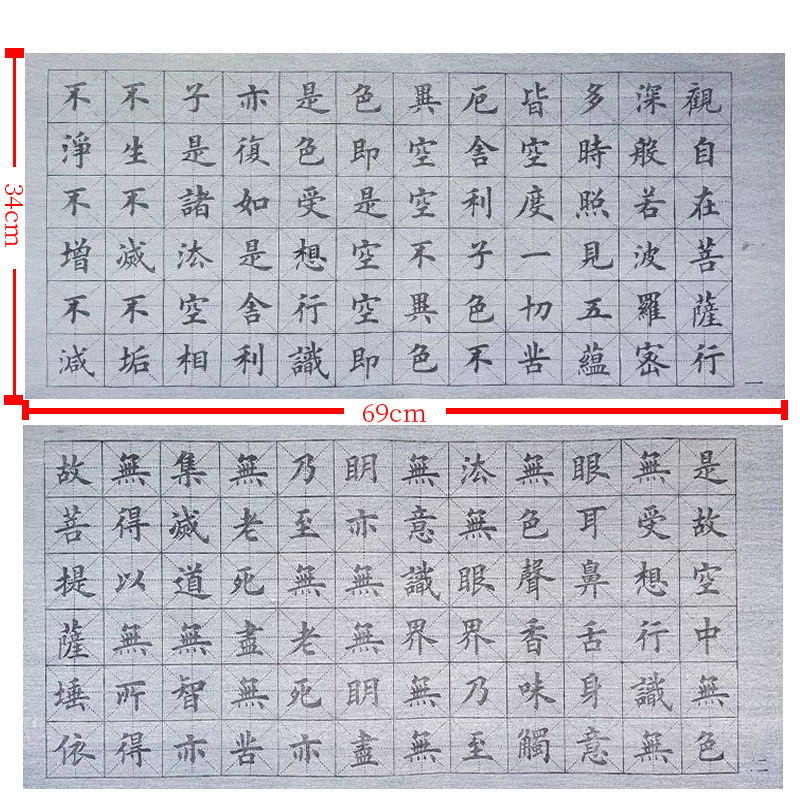 34cm
觀自在菩薩行
深般若波羅密
多時照見五蘊
皆空度一切苦
厄舍利子色不
異空空不異色
色即是空空即
是色受想行識
亦復如是舍利
子是諸法空相
不生不滅不垢
不淨不增不減
一
69cm
是故空中無色
無受想行識無
眼耳鼻舌身意
無色聲香味觸
法無眼界乃至
無意識界無無
明亦無無明盡
乃至無老死亦
無老死盡無苦
集滅道無智亦
無得以無所得
故菩提薩埵依
二